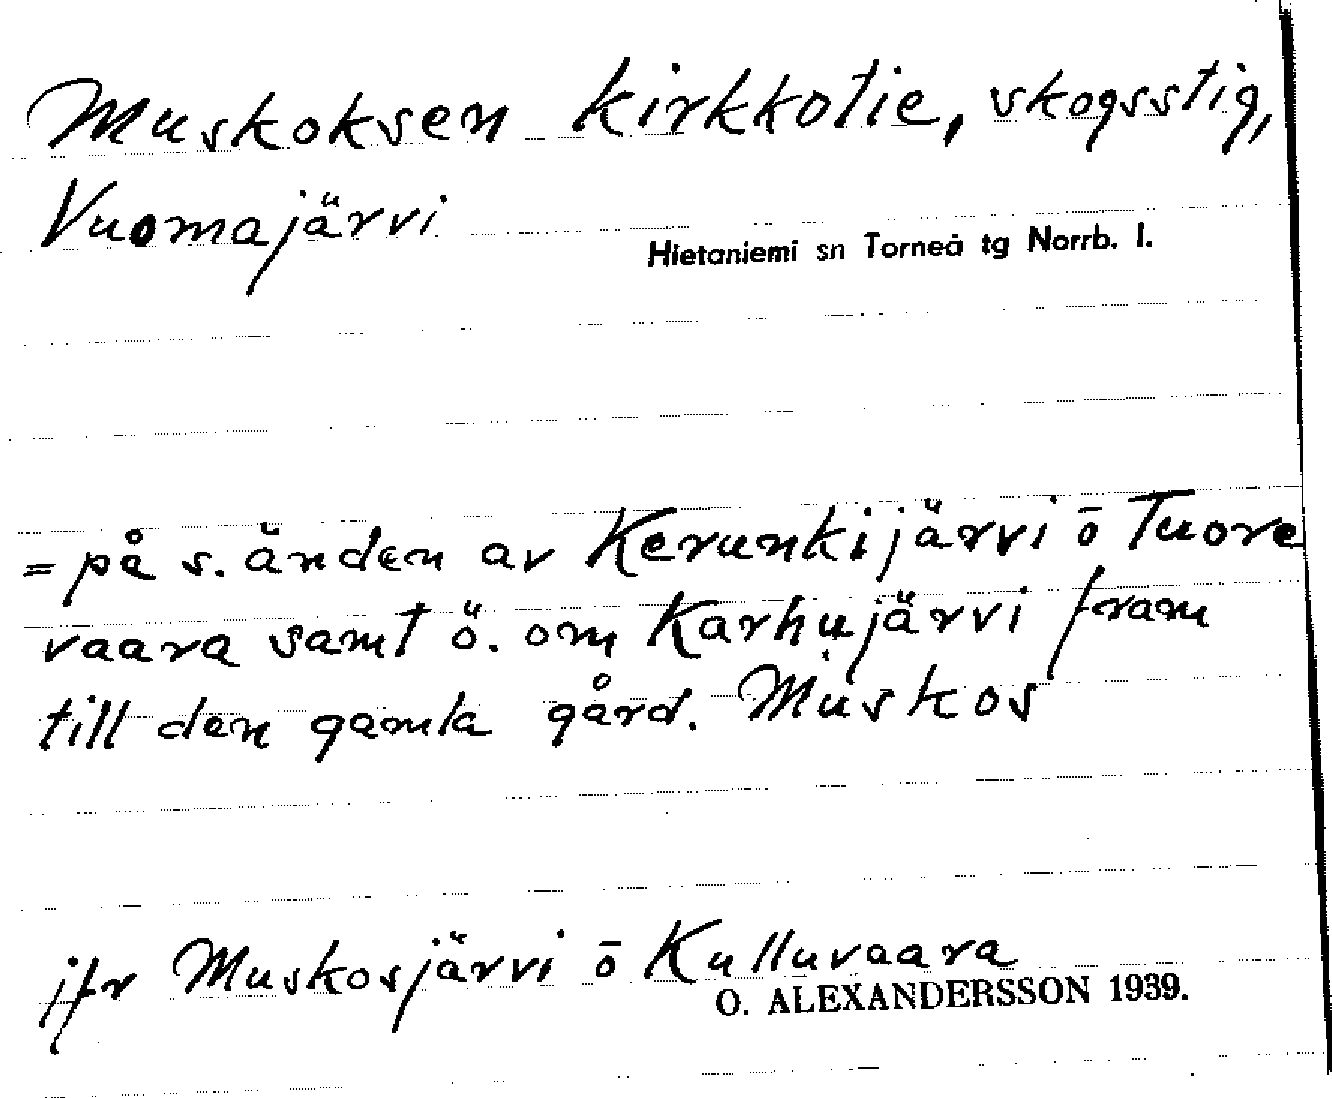 Muskoksen kirkkotie, skogsstig,
Vuomajärvi
Hietaniemi sn Torneå tg Norrb. l.
= på s. änden av Kerunkijärvi ō Tuore
vaara samt ö. om Karhujärvi fram
till den gamla gård. Muskos
jfr Muskosjärvi ō Kulluvaara
O. ALEXANDERSSON 1939.